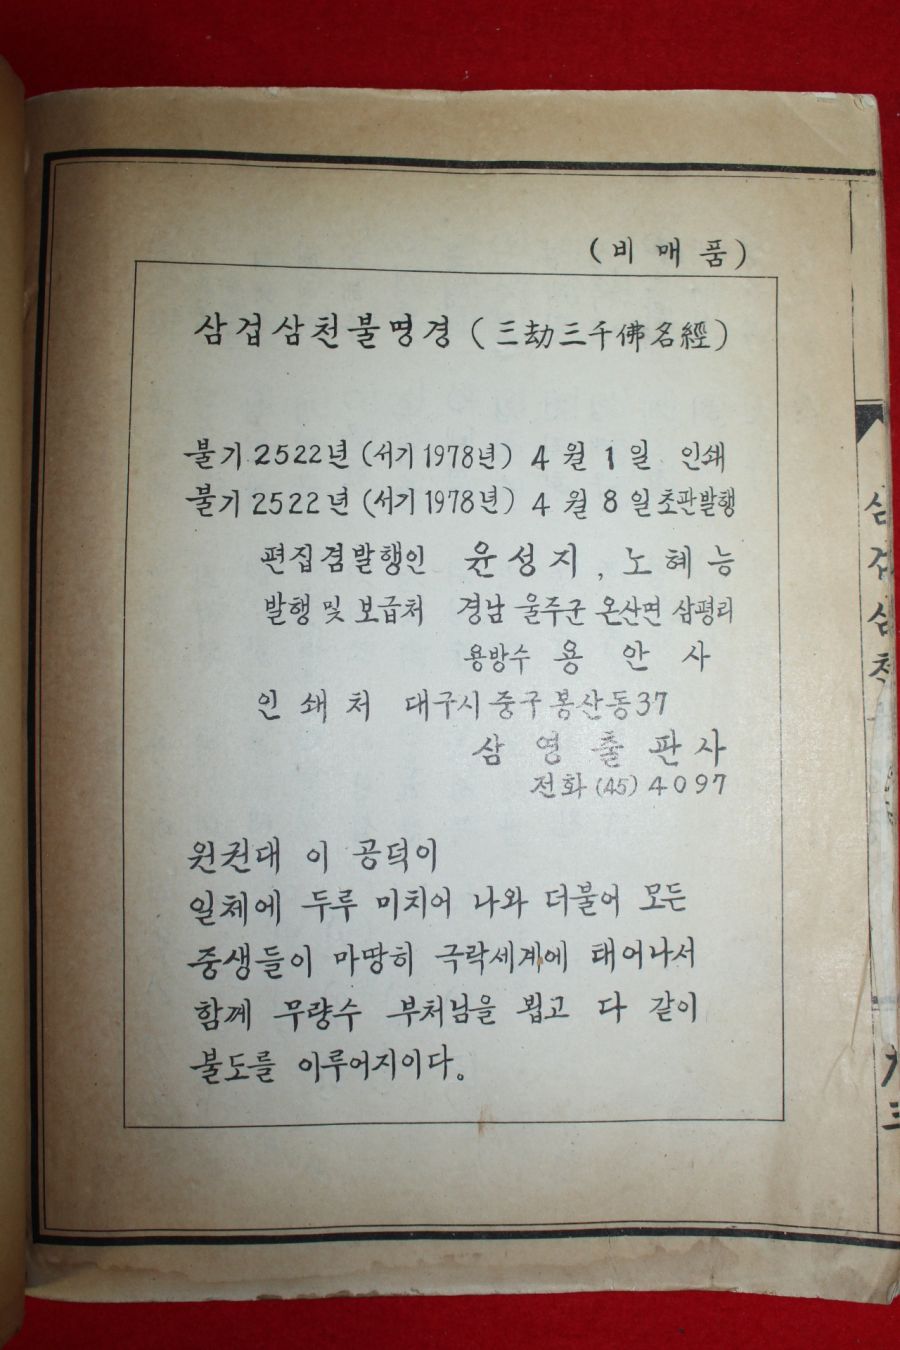 (비매품)
삼겁삼천불명경 (三劫三千佛名經)
불기 2522년 (서기 1978년) 4월 1일 인쇄
불기 2522년 (서기 1978년) 4월 8일 초판발행
편집겸발행인 윤성지, 노혜능
발행 및 보급처 경남 울주군 온산면 삼평리
용방수 용안사
인쇄처 대구시 중구 봉산동 37
삼영출판사
전화 (45) 4097
원컨대 이 공덕이
일체에 두루 미치어 나와 더불어 모든
중생들이 마땅히 극락세계에 태어나서
함께 무량수 부처님을 뵙고 다 같이
불도를 이루어지이다.
삼겁삼천